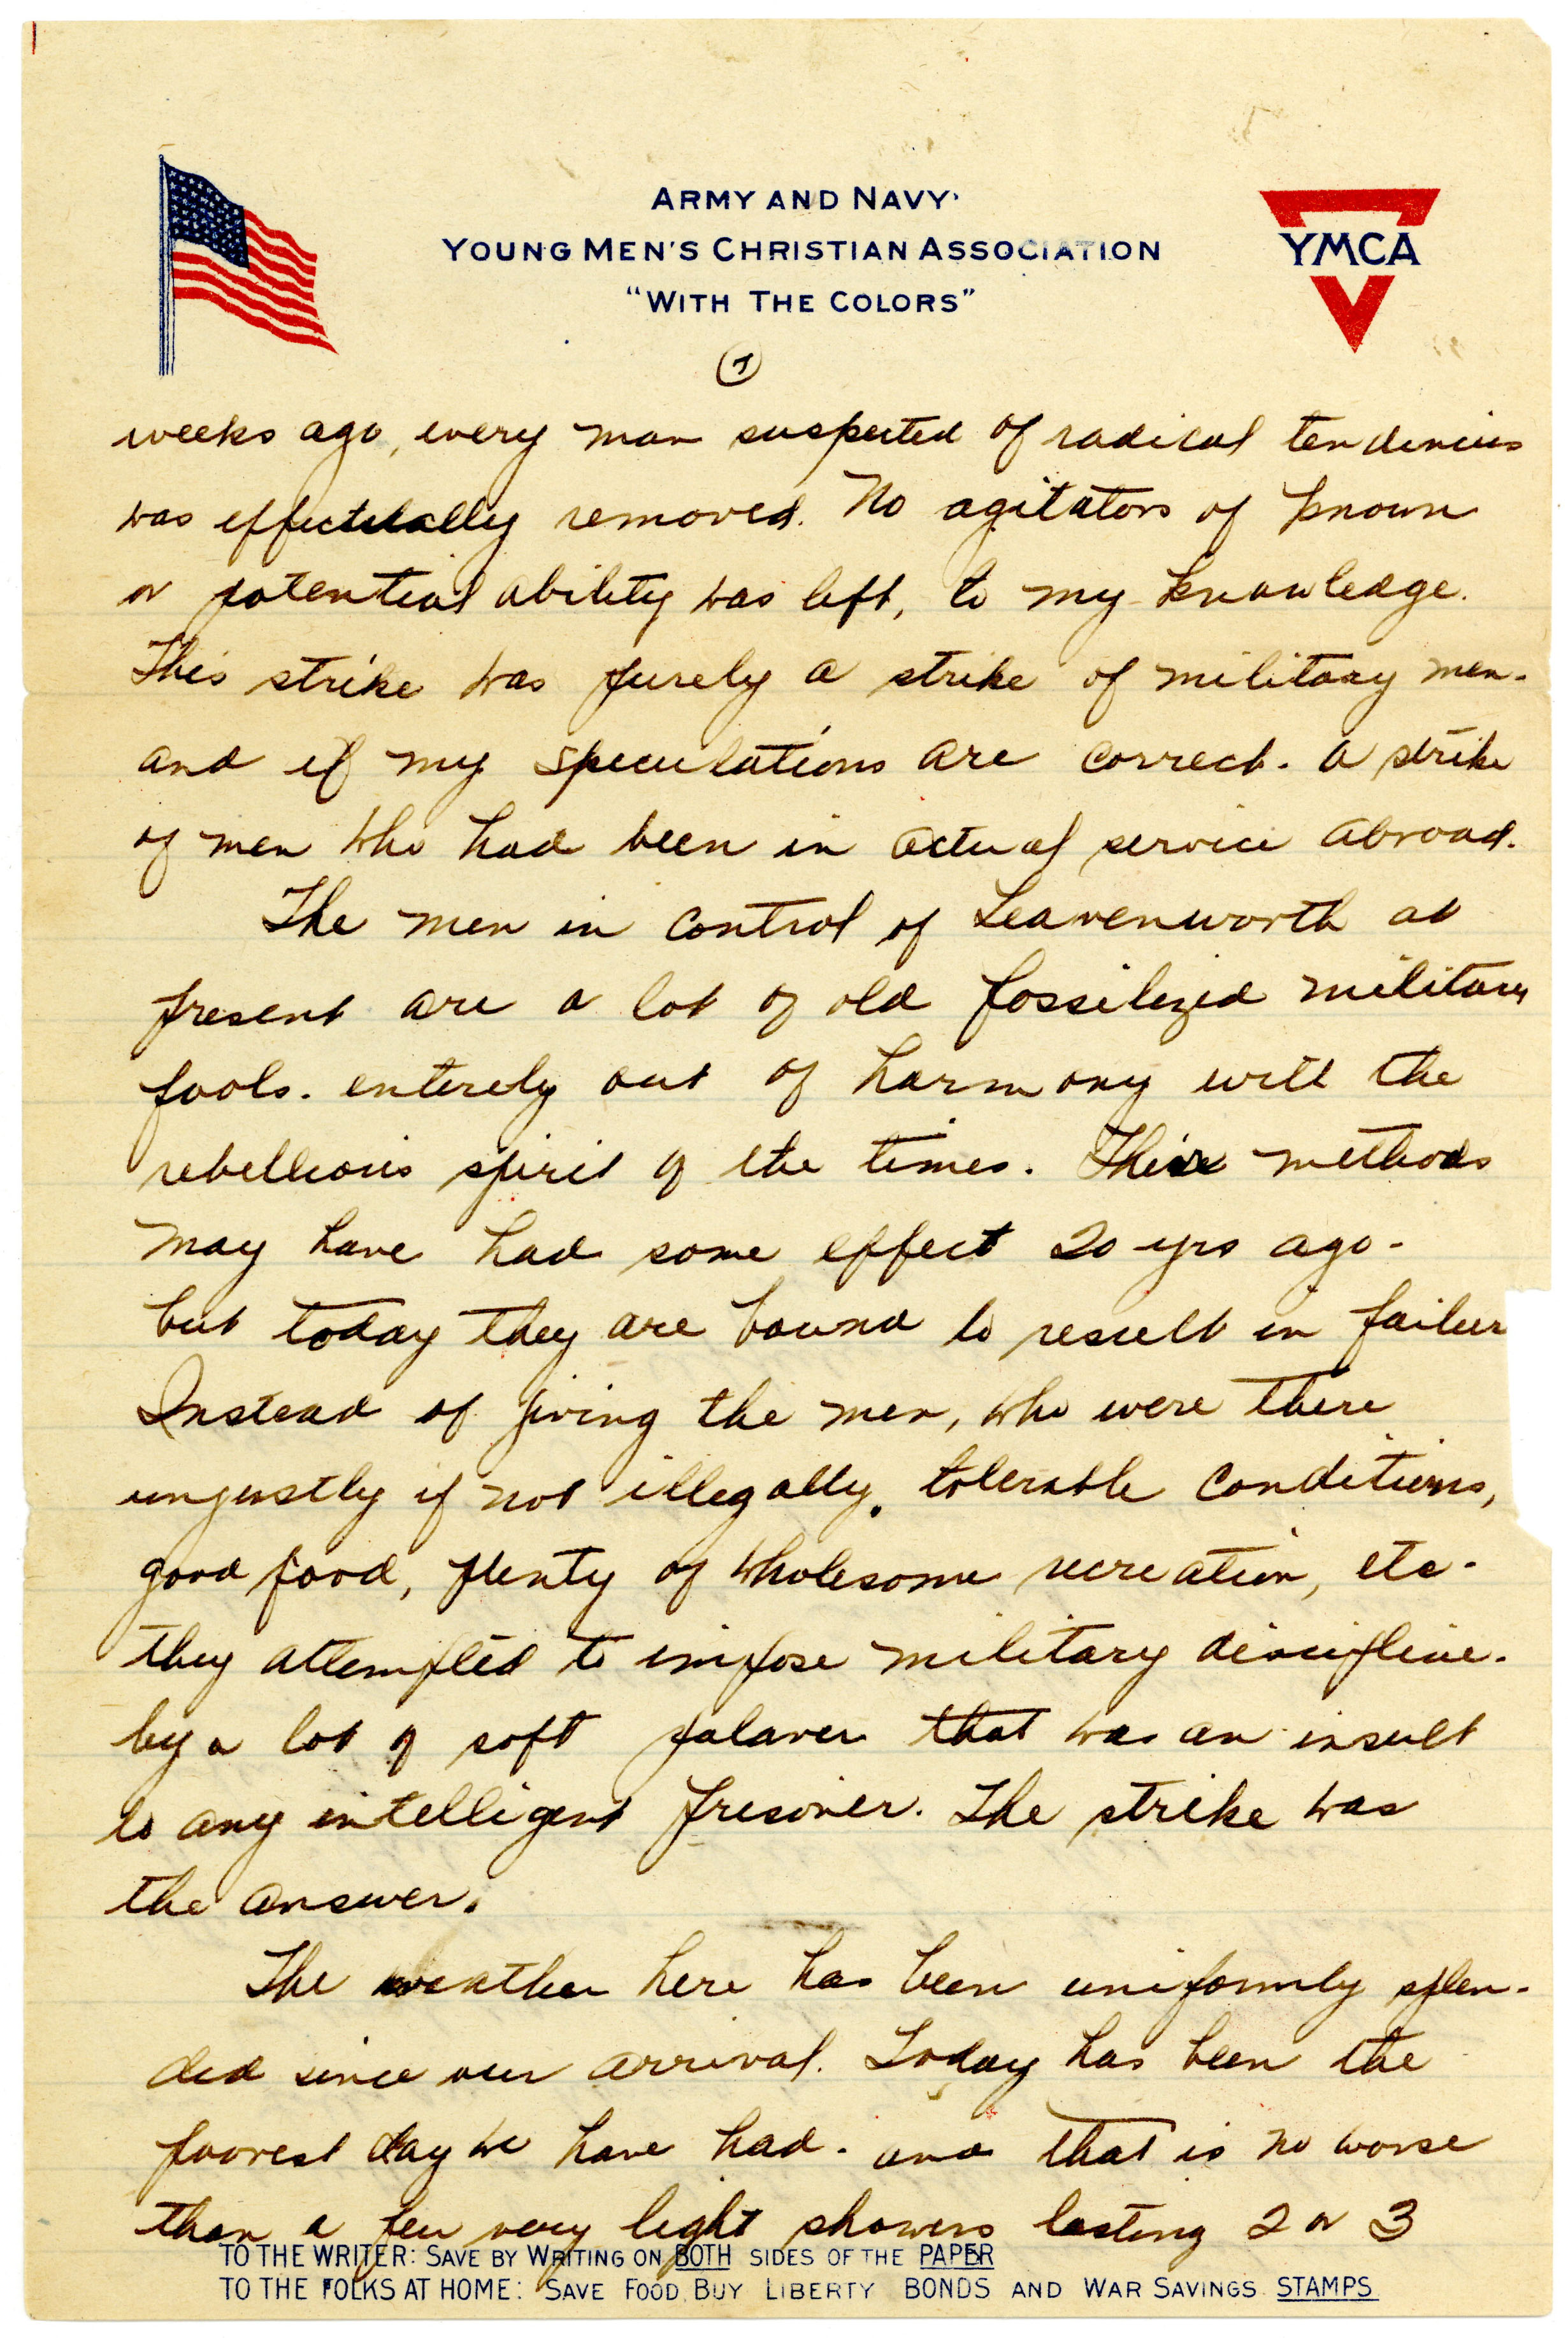 ARMY AND NAVY
YOUNG MEN'S CHRISTIAN ASSOCIATION
"WITH THE COLORS"
YMCA
7
weeks ago, every man suspected of radical tendencies
was effectually removed. No agitators of known
or potential ability was left, to my knowledge.
This strike was purely a strike of military men.
and if my speculations are correct. a strike
of men who had been in actual service abroad.
The men in control of Leavenworth at
present are a lot of old fossilized military
fools. entirely out of harmony with the
rebellious spirit of the times. Their methods
may have had some effect 20 yrs ago.
but today they are bound to result in failur
Instead of giving the men, who were there
unjustly if not illegally, tolerable conditions,
good food, plenty of wholesome recreation, etc.
they attempted to impose military discipline.
by a lot of soft palaver that was an insult
to any intelligent prisoner. The strike was
the answer.
The weather here has been uniformly splen-
did since our arrival. Today has been the
poorest day we have had. and that is no worse
than a few very light showers lasting 2 or 3
TO THE WRITER: SAVE BY WRITING ON BOTH SIDES OF THE PAPER
TO THE FOLKS AT HOME: SAVE FOOD, BUY LIBERTY BONDS AND WAR SAVINGS STAMPS